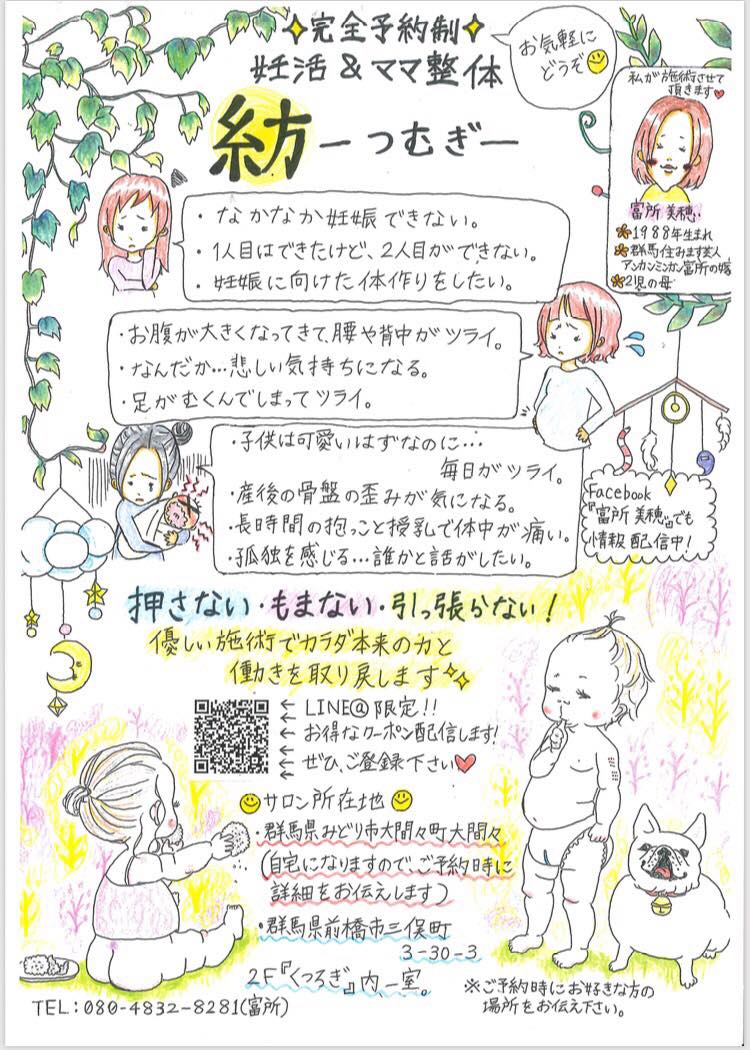 完全予約制
妊活&ママ整体
お気軽に
どうぞ
紡 ーつむぎー
私が施術させて
頂きます
富所 美穂
1988年生まれ
群馬住みます芸人
アンカンミンカン富所の嫁
2児の母
・なかなか妊娠できない。
・1人目はできたけど、2人目ができない。
・妊娠に向けた体作りをしたい。
・お腹が大きくなってきて、腰や背中がツライ。
・なんだか…悲しい気持ちになる。
・足がむくんでしまってツライ。
・子供は可愛いはずなのに…
毎日がツライ。
・産後の骨盤の歪みが気になる。
・長時間の抱っこと授乳で体中が痛い。
・孤独を感じる…誰かと話がしたい。
Facebook
『富所 美穂』でも
情報配信中!
押さない・もまない・引っ張らない!
優しい施術でカラダ本来の力と
働きを取り戻します
← LINE@限定!!
← お得なクーポン配信します!
← ぜひ、ご登録下さい
サロン所在地
・群馬県みどり市大間々町大間々
(自宅になりますので、ご予約時に
詳細をお伝えします)
・群馬県前橋市三俣町
3-30-3
2F『くつろぎ』内一室。
※ご予約時にお好きな方の
場所をお伝え下さい。
TEL:080-4832-8281(富所)